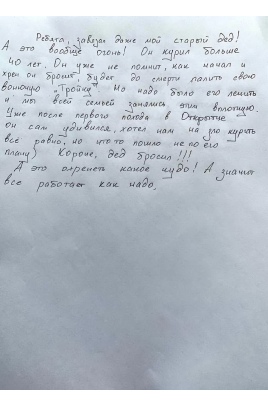 Ребята, завязал даже мой старый дед!
А это вообще огонь! Он курил больше
40 лет. Он уже не помнит, как начал и
хрен он бросит, будет до смерти палить свою
вонючую "Тройку". Но надо было его лечить
и мы всей семьей занялись этим вплотную.
Уже после первого похода в Открытие
он сам удивился, хотел нам на зло курить
все равно, но что-то пошло не по его
плану) Короче, дед бросил!!!
А это охренеть какое чудо! А значит
все работает как надо.